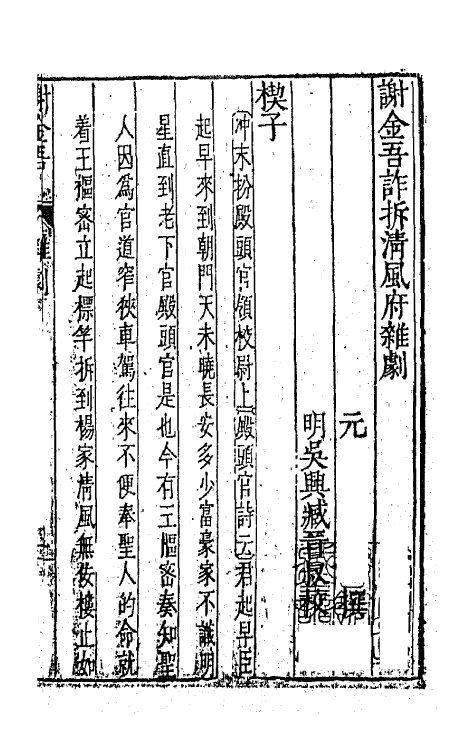 謝金吾詐拆清風府雜劇
元　撰
明吳興臧晉叔校
楔子
冲末扮殿頭官領校尉上殿頭官詩云君起早臣
起早來到朝門天未曉長安多少富豪家不識明
星直到老下官殿頭官是也今有王樞密奏知聖
人因為官道窄狹車駕往來不便奉聖人的命就
着王樞密立起標竿拆到楊家清風無佞樓止如
謝金吾　雜劇